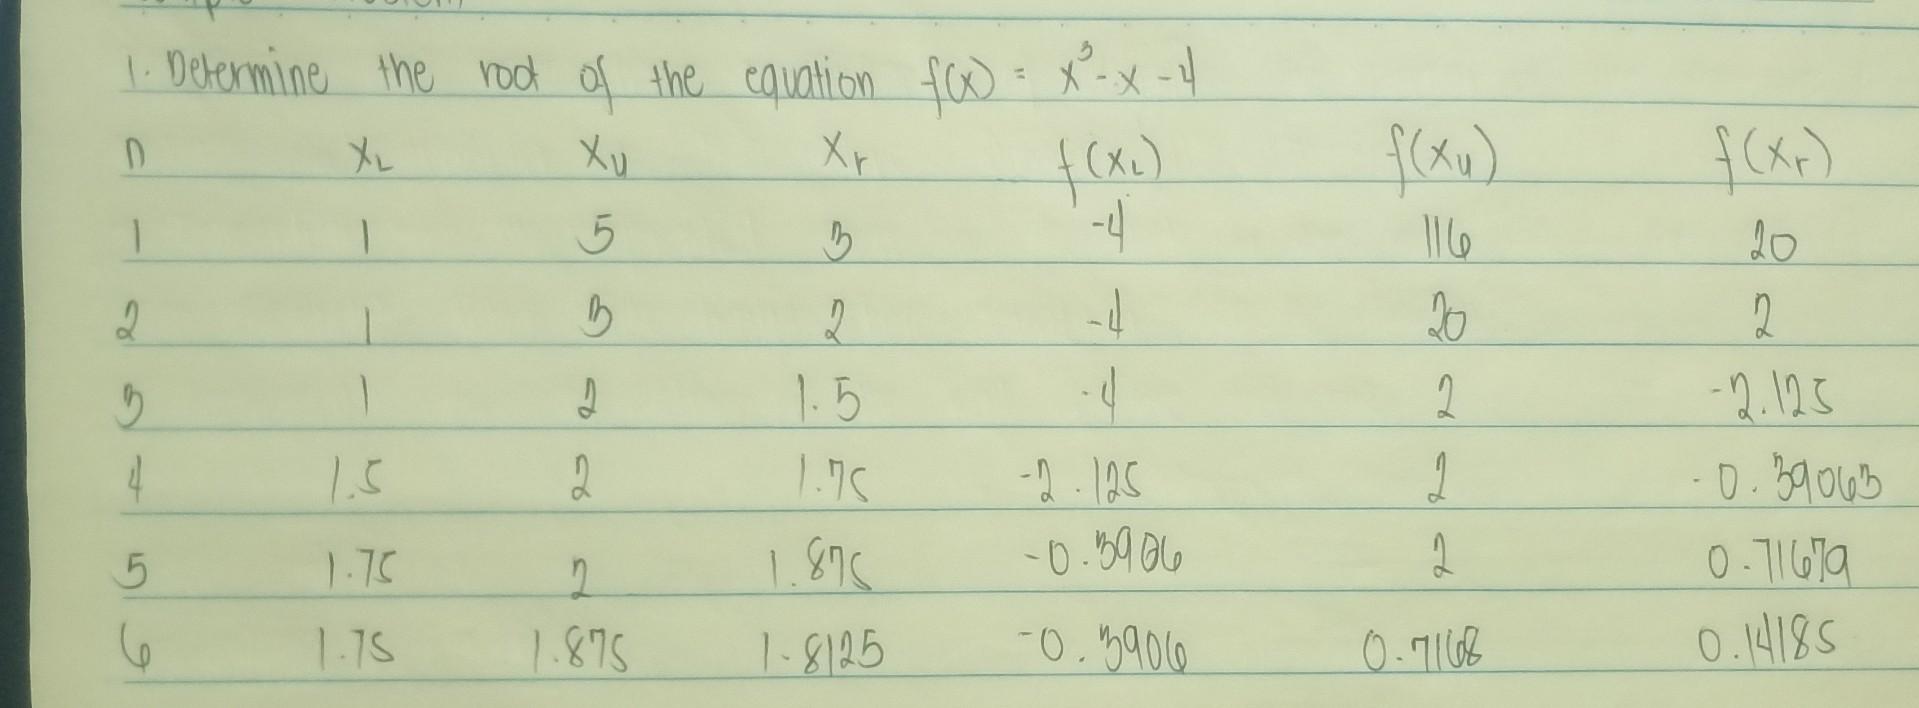 1. Determine the root of the equation f(x) = x³ - x - 4
n XL XU Xr f(XL) f(Xu) f(Xr)
1 1 5 3 -4 116 20
2 1 3 2 -4 20 2
3 1 2 1.5 -4 2 -2.125
4 1.5 2 1.75 -2.125 2 -0.39063
5 1.75 2 1.875 -0.3906 2 0.71679
6 1.75 1.875 1.8125 -0.3906 0.7168 0.14185